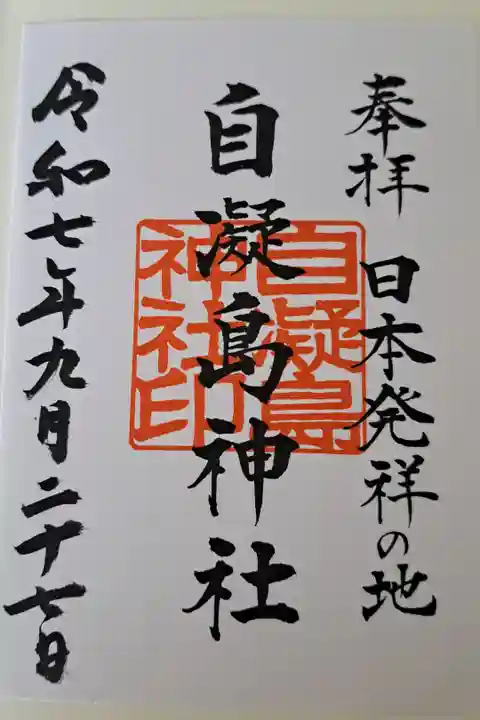 奉拝 日本発祥の地
自凝島神社
自凝島
神社印
令和七年九月二十七日